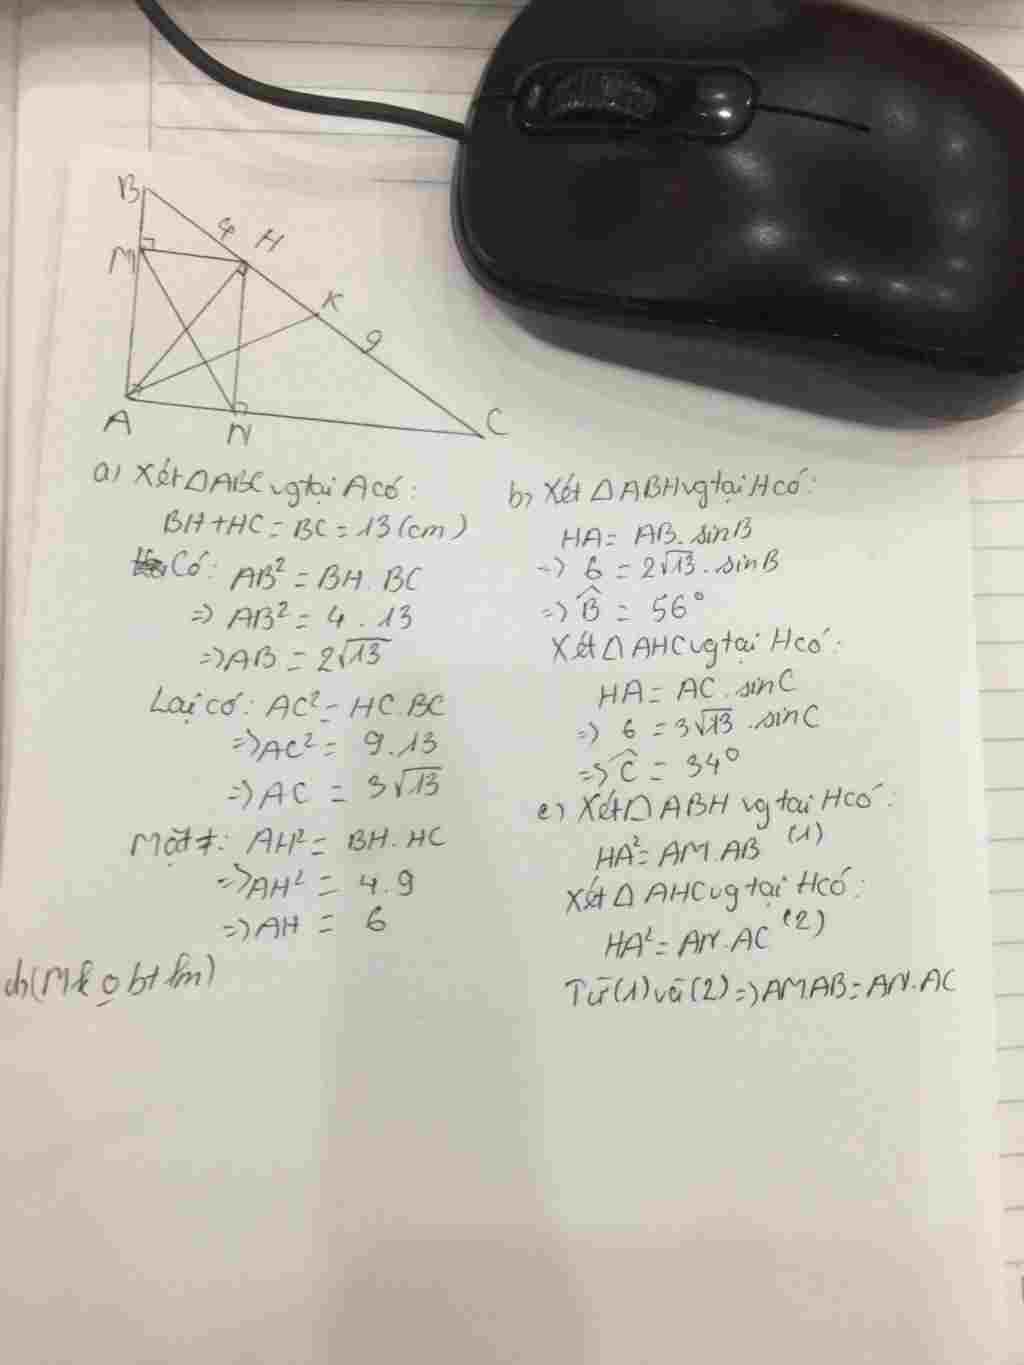 B
4 H
M
K
9
A
N
C
a) Xét △ABC vg tại A có:
BH+HC = BC = 13 (cm)
Có: AB² = BH. BC
=> AB² = 4 . 13
=> AB = 2√13
Lại có: AC² = HC. BC
=> AC² = 9.13
=> AC = 3√13
Một ≠: AH² = BH. HC
=> AH² = 4.9
=> AH = 6
b) Xét △ABH vg tại H có:
HA = AB. sinB
=> 6 = 2√13 . sinB
=> B̂ = 56°
Xét △AHC vg tại H có:
HA = AC . sinC
=> 6 = 3√13 . sinC
=> Ĉ = 34°
c) Xét △ABH vg tại H có:
HA² = AM. AB (1)
Xét △AHC vg tại H có:
HA² = AN. AC (2)
Từ (1) và (2) => AM.AB = AN. AC